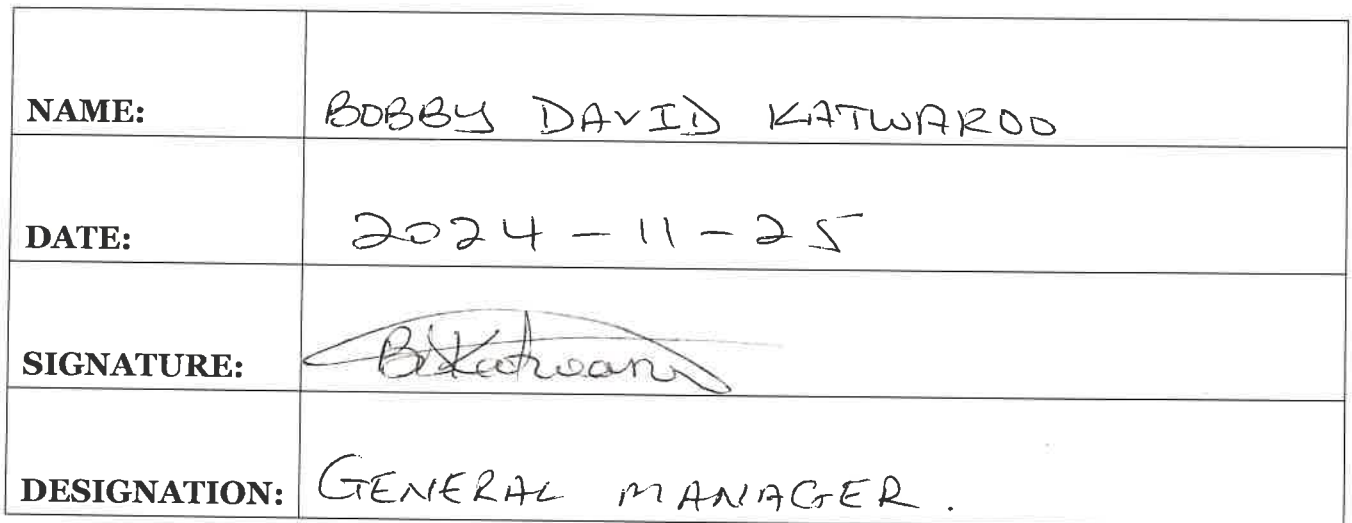 NAME: BOBBY DAVID KATWAROO
DATE: 2024-11-25
SIGNATURE:
DESIGNATION: GENERAL MANAGER.